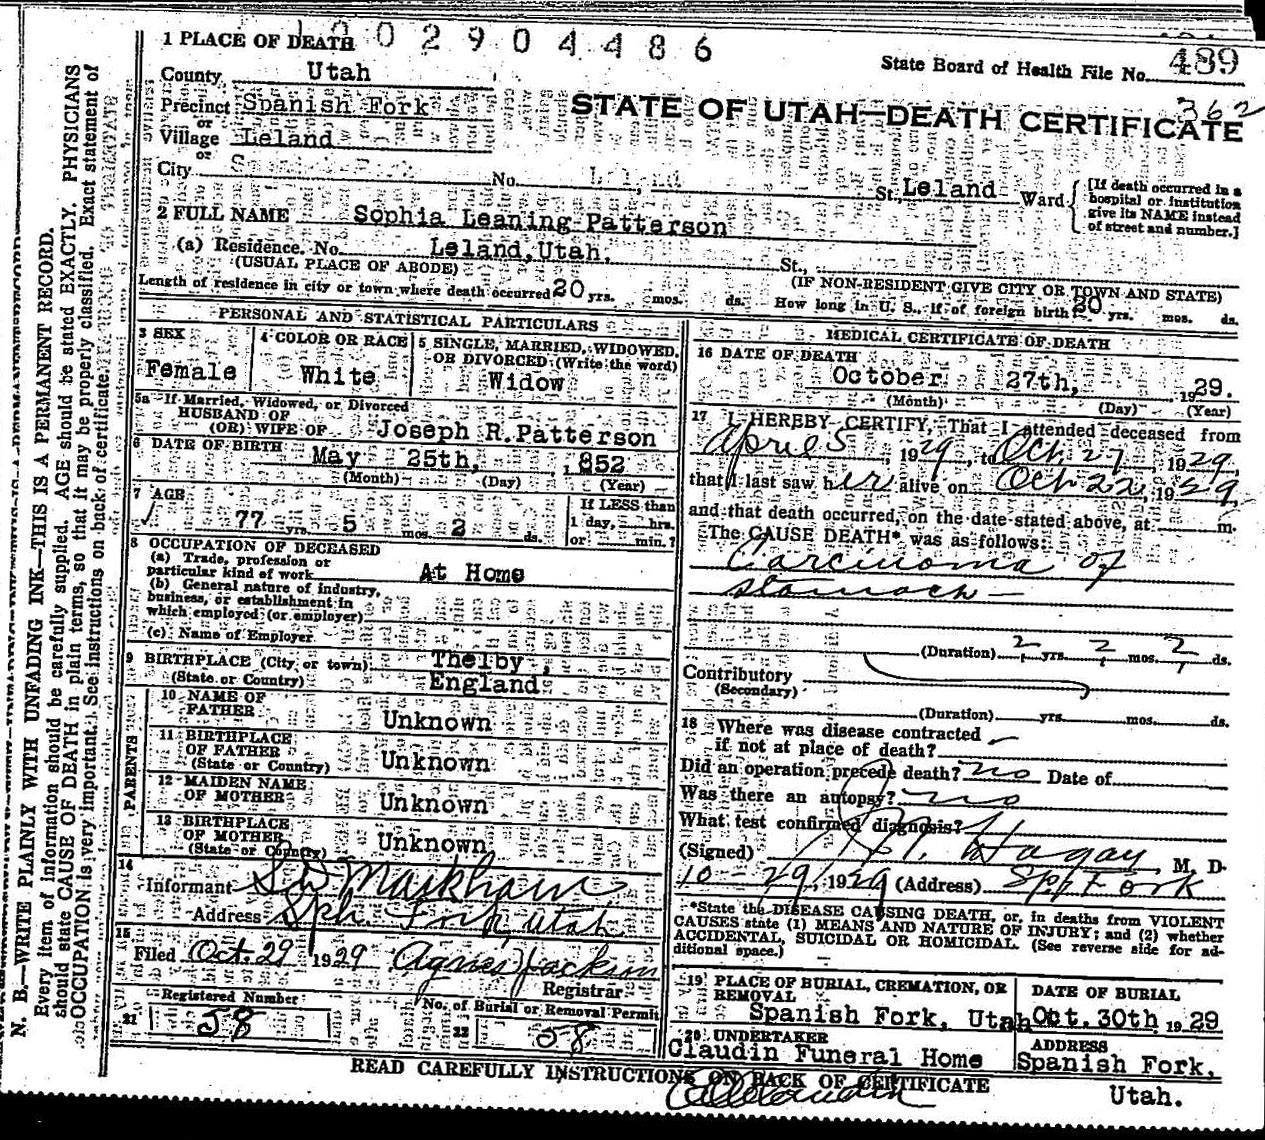 1 PLACE OF DEATH 1002904486
State Board of Health File No. 489
362
County Utah
Precinct Spanish Fork
or
Village Leland
or
City No. St., Leland Ward
STATE OF UTAH—DEATH CERTIFICATE
[If death occurred in a
hospital or institution
give its NAME instead
of street and number.]
2 FULL NAME Sophia Leaning Patterson
(a) Residence. No. Leland, Utah. St.,
(USUAL PLACE OF ABODE) (IF NON-RESIDENT GIVE CITY OR TOWN AND STATE)
Length of residence in city or town where death occurred 20 yrs. mos. ds. How long in U. S., if of foreign birth? yrs. mos. ds.
PERSONAL AND STATISTICAL PARTICULARS
3 SEX
Female
4 COLOR OR RACE
White
5 SINGLE, MARRIED, WIDOWED,
OR DIVORCED (Write the word)
Widow
5a If Married, Widowed, or Divorced
HUSBAND OF
(OR) WIFE OF Joseph R. Patterson
6 DATE OF BIRTH May 25th, 1852
(Month) (Day) (Year)
7 AGE
77 yrs. 5 mos. 2 ds.
If LESS than
1 day, hrs.
or min.?
8 OCCUPATION OF DECEASED
(a) Trade, profession or
particular kind of work At Home
(b) General nature of industry,
business, or establishment in
which employed (or employer)
(c) Name of Employer
9 BIRTHPLACE (City or town) Thelby,
(State or Country) England
PARENTS
10 NAME OF
FATHER Unknown
11 BIRTHPLACE
OF FATHER
(State or Country) Unknown
12 MAIDEN NAME
OF MOTHER Unknown
13 BIRTHPLACE
OF MOTHER
(State or Country) Unknown
14
Informant Markham
Address Sph. Fork, Utah
15
Filed Oct. 29 1929 Agnes Jackson
Registrar
Registered Number
21 58
No. of Burial or Removal Permit
22 58
MEDICAL CERTIFICATE OF DEATH
16 DATE OF DEATH
October 27th, 1929.
(Month) (Day) (Year)
17 I HEREBY CERTIFY, That I attended deceased from
April 5, 1929, to Oct. 27, 1929,
that I last saw her alive on Oct 22, 1929,
and that death occurred, on the date stated above, at m.
The CAUSE DEATH* was as follows:
Carcinoma of
stomach —
(Duration) yrs. mos. ds.
Contributory
(Secondary)
(Duration) yrs. mos. ds.
18 Where was disease contracted
if not at place of death?
Did an operation precede death? no Date of
Was there an autopsy? no
What test confirmed diagnosis?
(Signed) Hagay, M. D.
10 - 29, 1929 (Address) Sp. Fork
*State the DISEASE CAUSING DEATH, or, in deaths from VIOLENT
CAUSES state (1) MEANS AND NATURE OF INJURY; and (2) whether
ACCIDENTAL, SUICIDAL OR HOMICIDAL. (See reverse side for ad-
ditional space.)
19 PLACE OF BURIAL, CREMATION, OR
REMOVAL
Spanish Fork, Utah
DATE OF BURIAL
Oct. 30th 1929
20 UNDERTAKER
Claudin Funeral Home
ADDRESS
Spanish Fork,
Utah.
READ CAREFULLY INSTRUCTIONS ON BACK OF CERTIFICATE
N. B.—WRITE PLAINLY WITH UNFADING INK—THIS IS A PERMANENT RECORD.
Every item of information should be carefully supplied. AGE should be stated EXACTLY. PHYSICIANS
should state CAUSE OF DEATH in plain terms, so that it may be properly classified. Exact statement of
OCCUPATION is very important. See instructions on back of certificate.